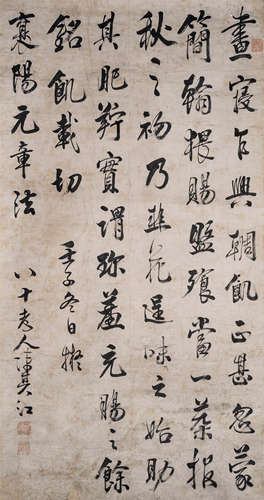 晝寢乍興輖飢正甚忽蒙
簡翰猥賜盤飧當一葉報
秋之初乃韭花逞味之始助
其肥羜實謂珍羞充賜之餘
銘飢載切
壬子冬日擬
襄陽元章法
八十老人